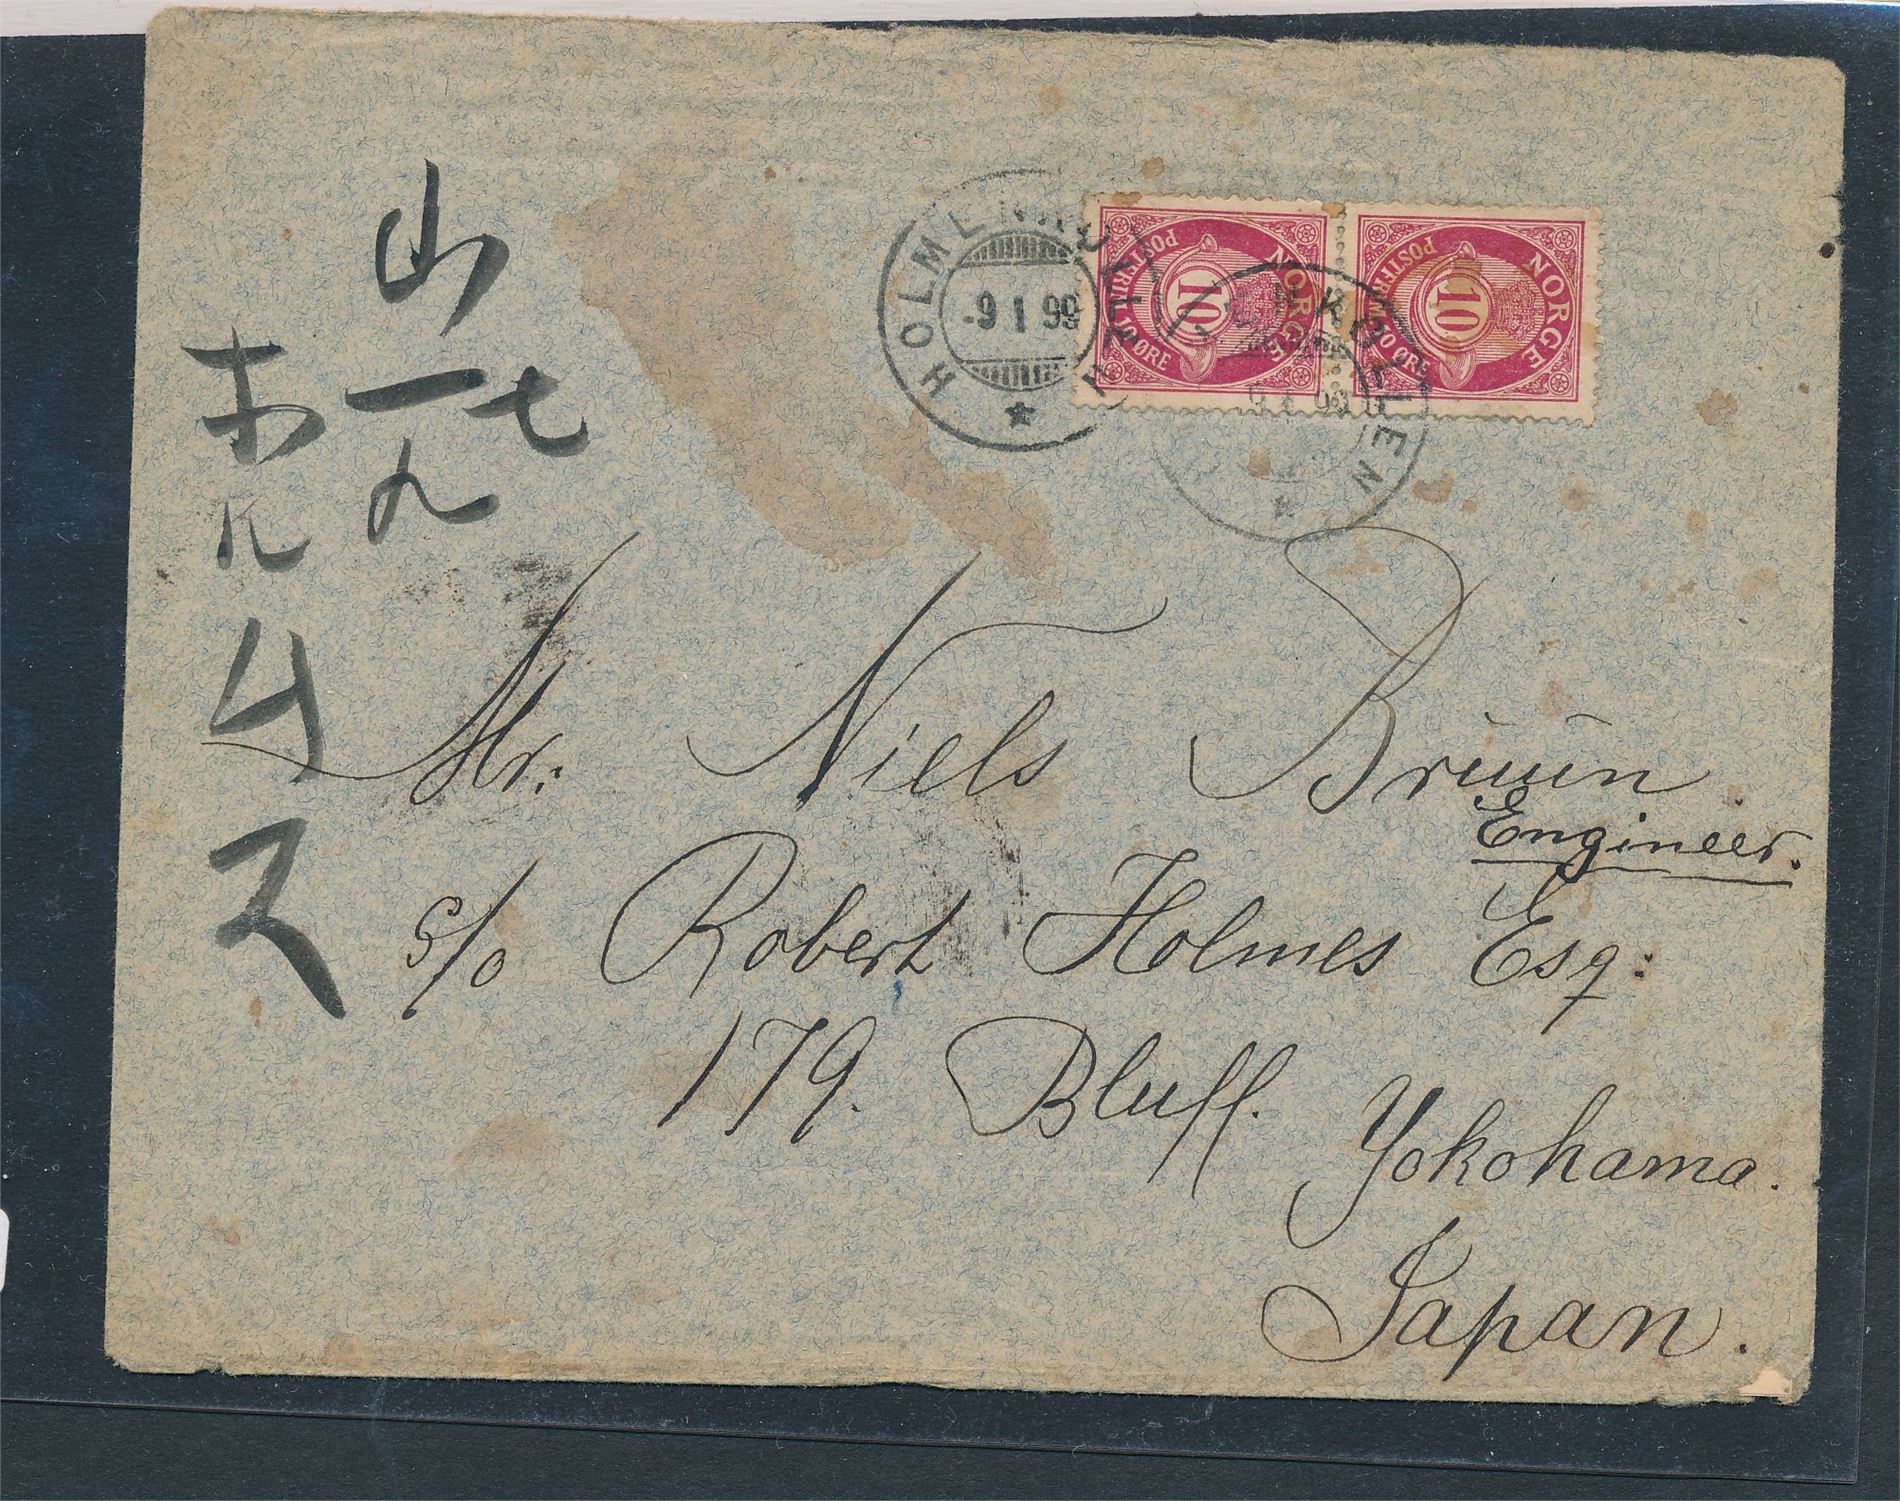 HOLMENKOLLEN
-9 I 99
NORGE
POSTFRIM. 10 ØRE
10
NORGE
POSTFRIM. 10 ØRE
10
HOLMENKOLLEN
山
一七
九
ホルムス
Mr. Niels Bruun
Engineer.
c/o Robert Holmes Esq:
179. Bluff.
Yokohama.
Japan.